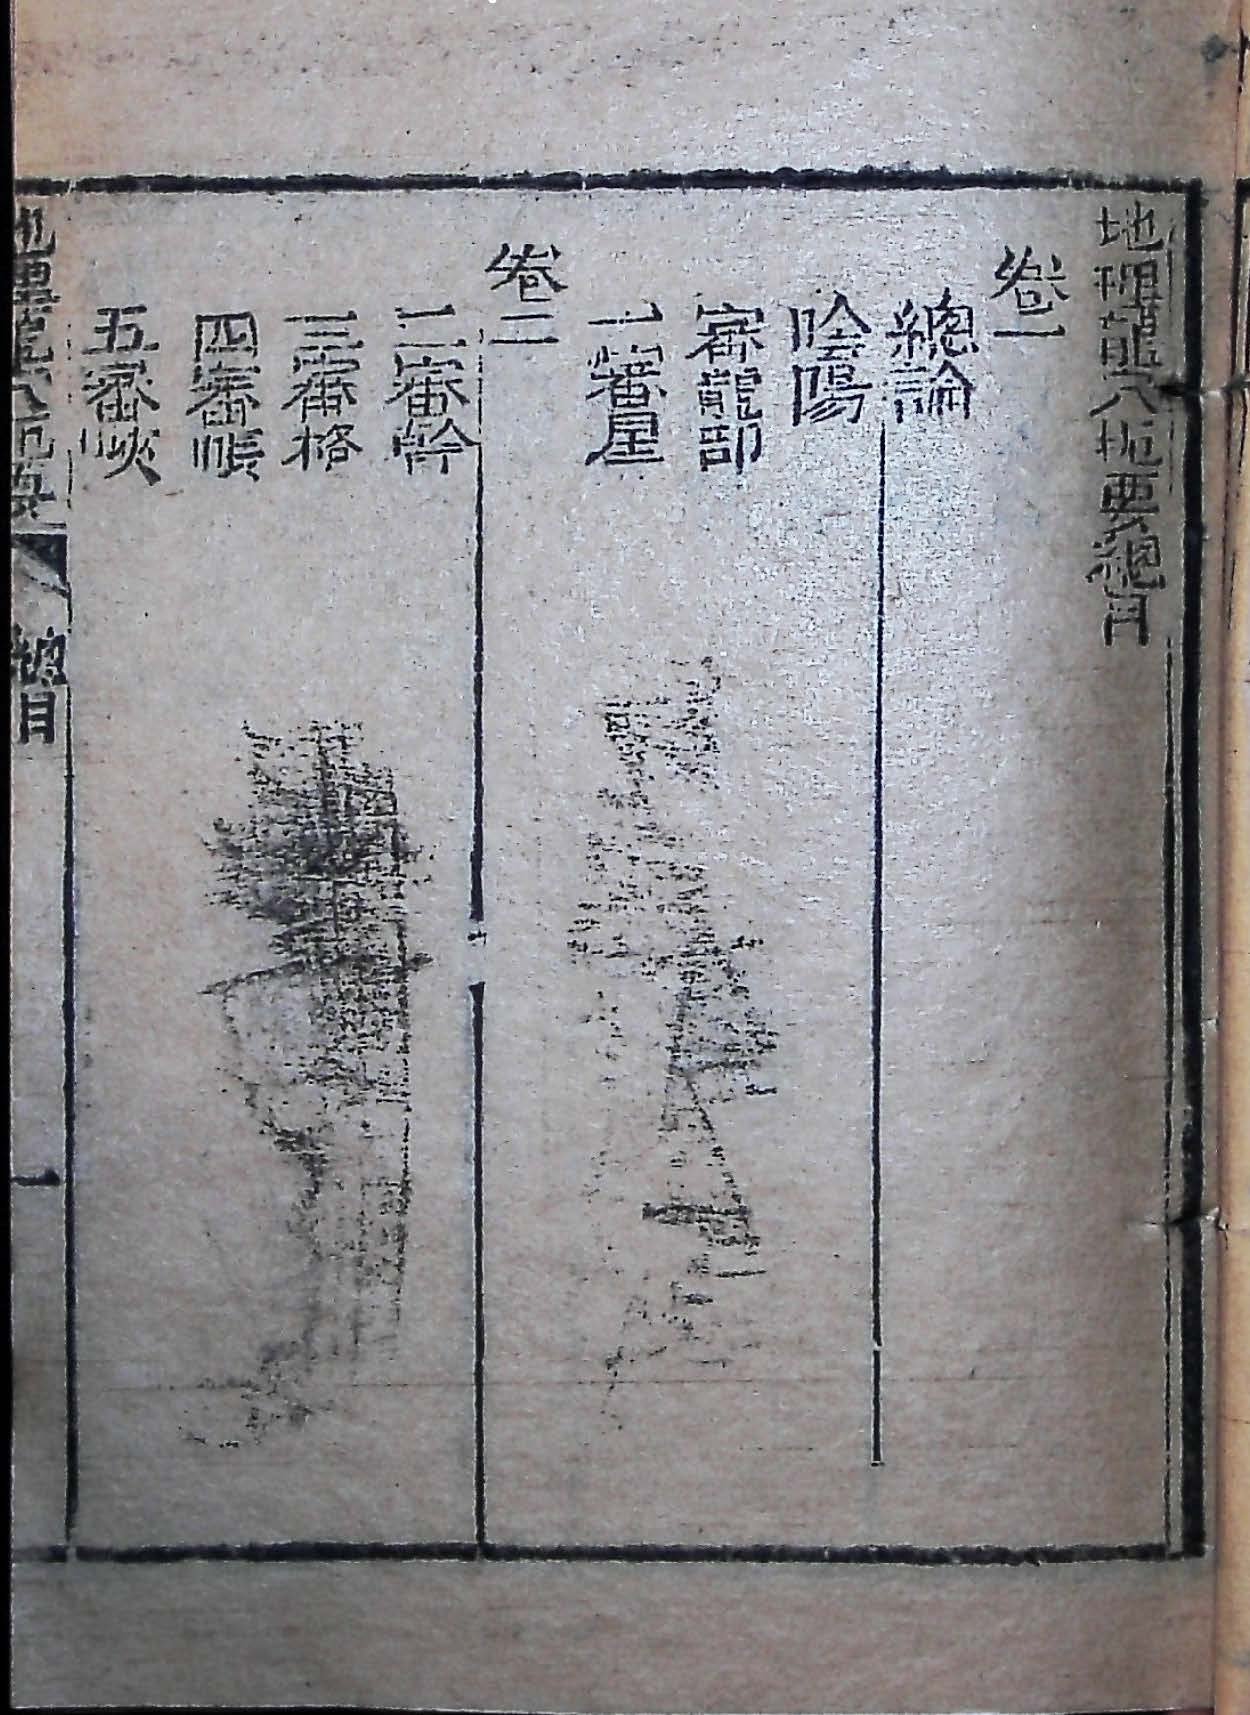 地理龍穴扼要總目
卷一
總論
陰陽
審龍部
一審星
卷二
二審幹
三審格
四審帳
五審峽
地理龍穴扼要 總目 一